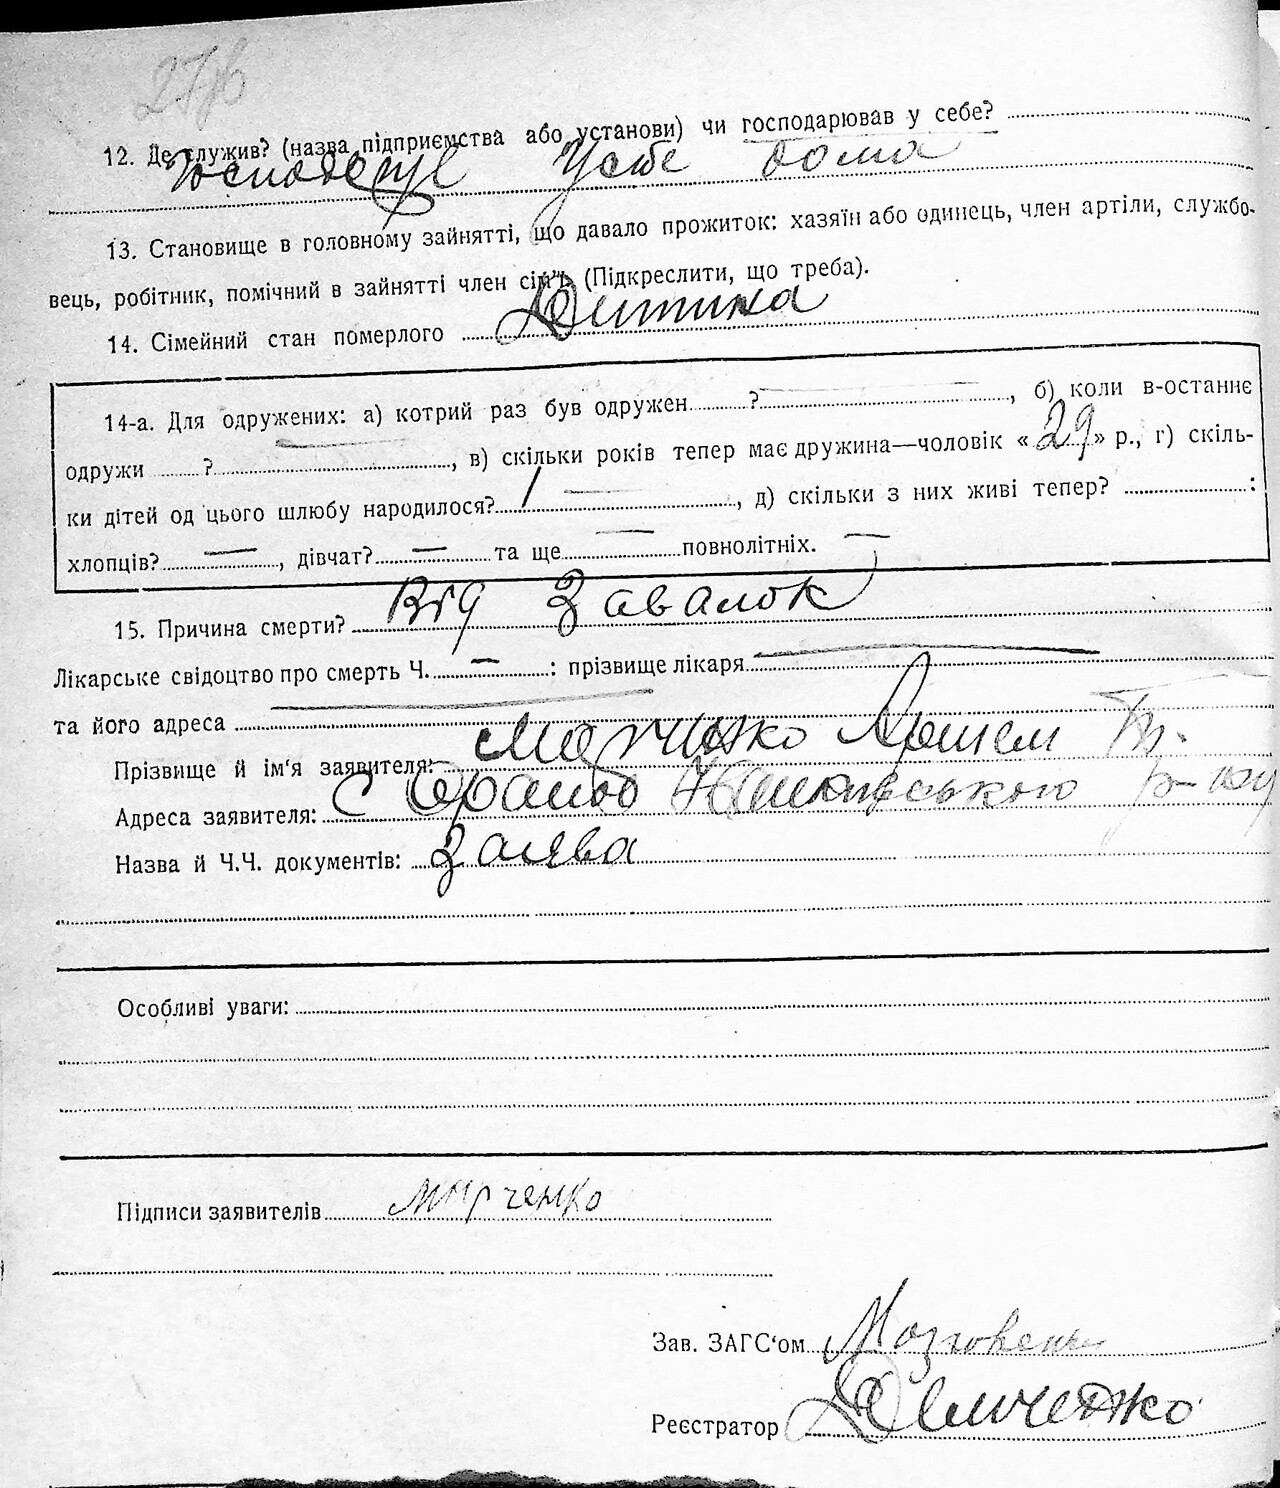 12. Де служив? (назва підприємства або установи) чи господарював у себе?
Господарує У себе дома
13. Становище в головному зайнятті, що давало прожиток: хазяїн або одинець, член артіли, службо-
вець, робітник, помічний в зайнятті член сім'ї. (Підкреслити, що треба).
14. Сімейний стан померлого Дитина
14-а. Для одружених: а) котрий раз був одружен ? — , б) коли в-останнє
одружи ? — , в) скільки років тепер має дружина—чоловік «29» р., г) скіль-
ки дітей од цього шлюбу народилося? / — , д) скільки з них живі тепер? :
хлопців? — , дівчат? — та ще — повнолітніх. —
15. Причина смерти? Від Завалок
Лікарське свідоцтво про смерть Ч. — : прізвище лікаря —
та його адреса —
Прізвище й ім'я заявителя: Марченко
Адреса заявителя: С
Назва й Ч.Ч. документів: Заява
Особливі уваги:
Підписи заявителів Марченко
Зав. ЗАГС'ом
Реєстратор Демченко